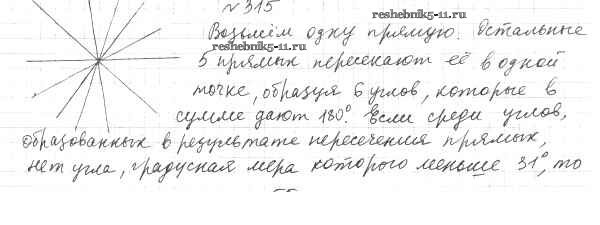 № 315
reshebnik5-11.ru
Возьмём одну прямую. Остальные
5 прямых пересекают её в одной
точке, образуя 6 углов, которые в
сумме дают 180°. Если среди углов,
reshebnik5-11.ru
образованных в результате пересечения прямых,
нет угла, градусная мера которого меньше 31°, то